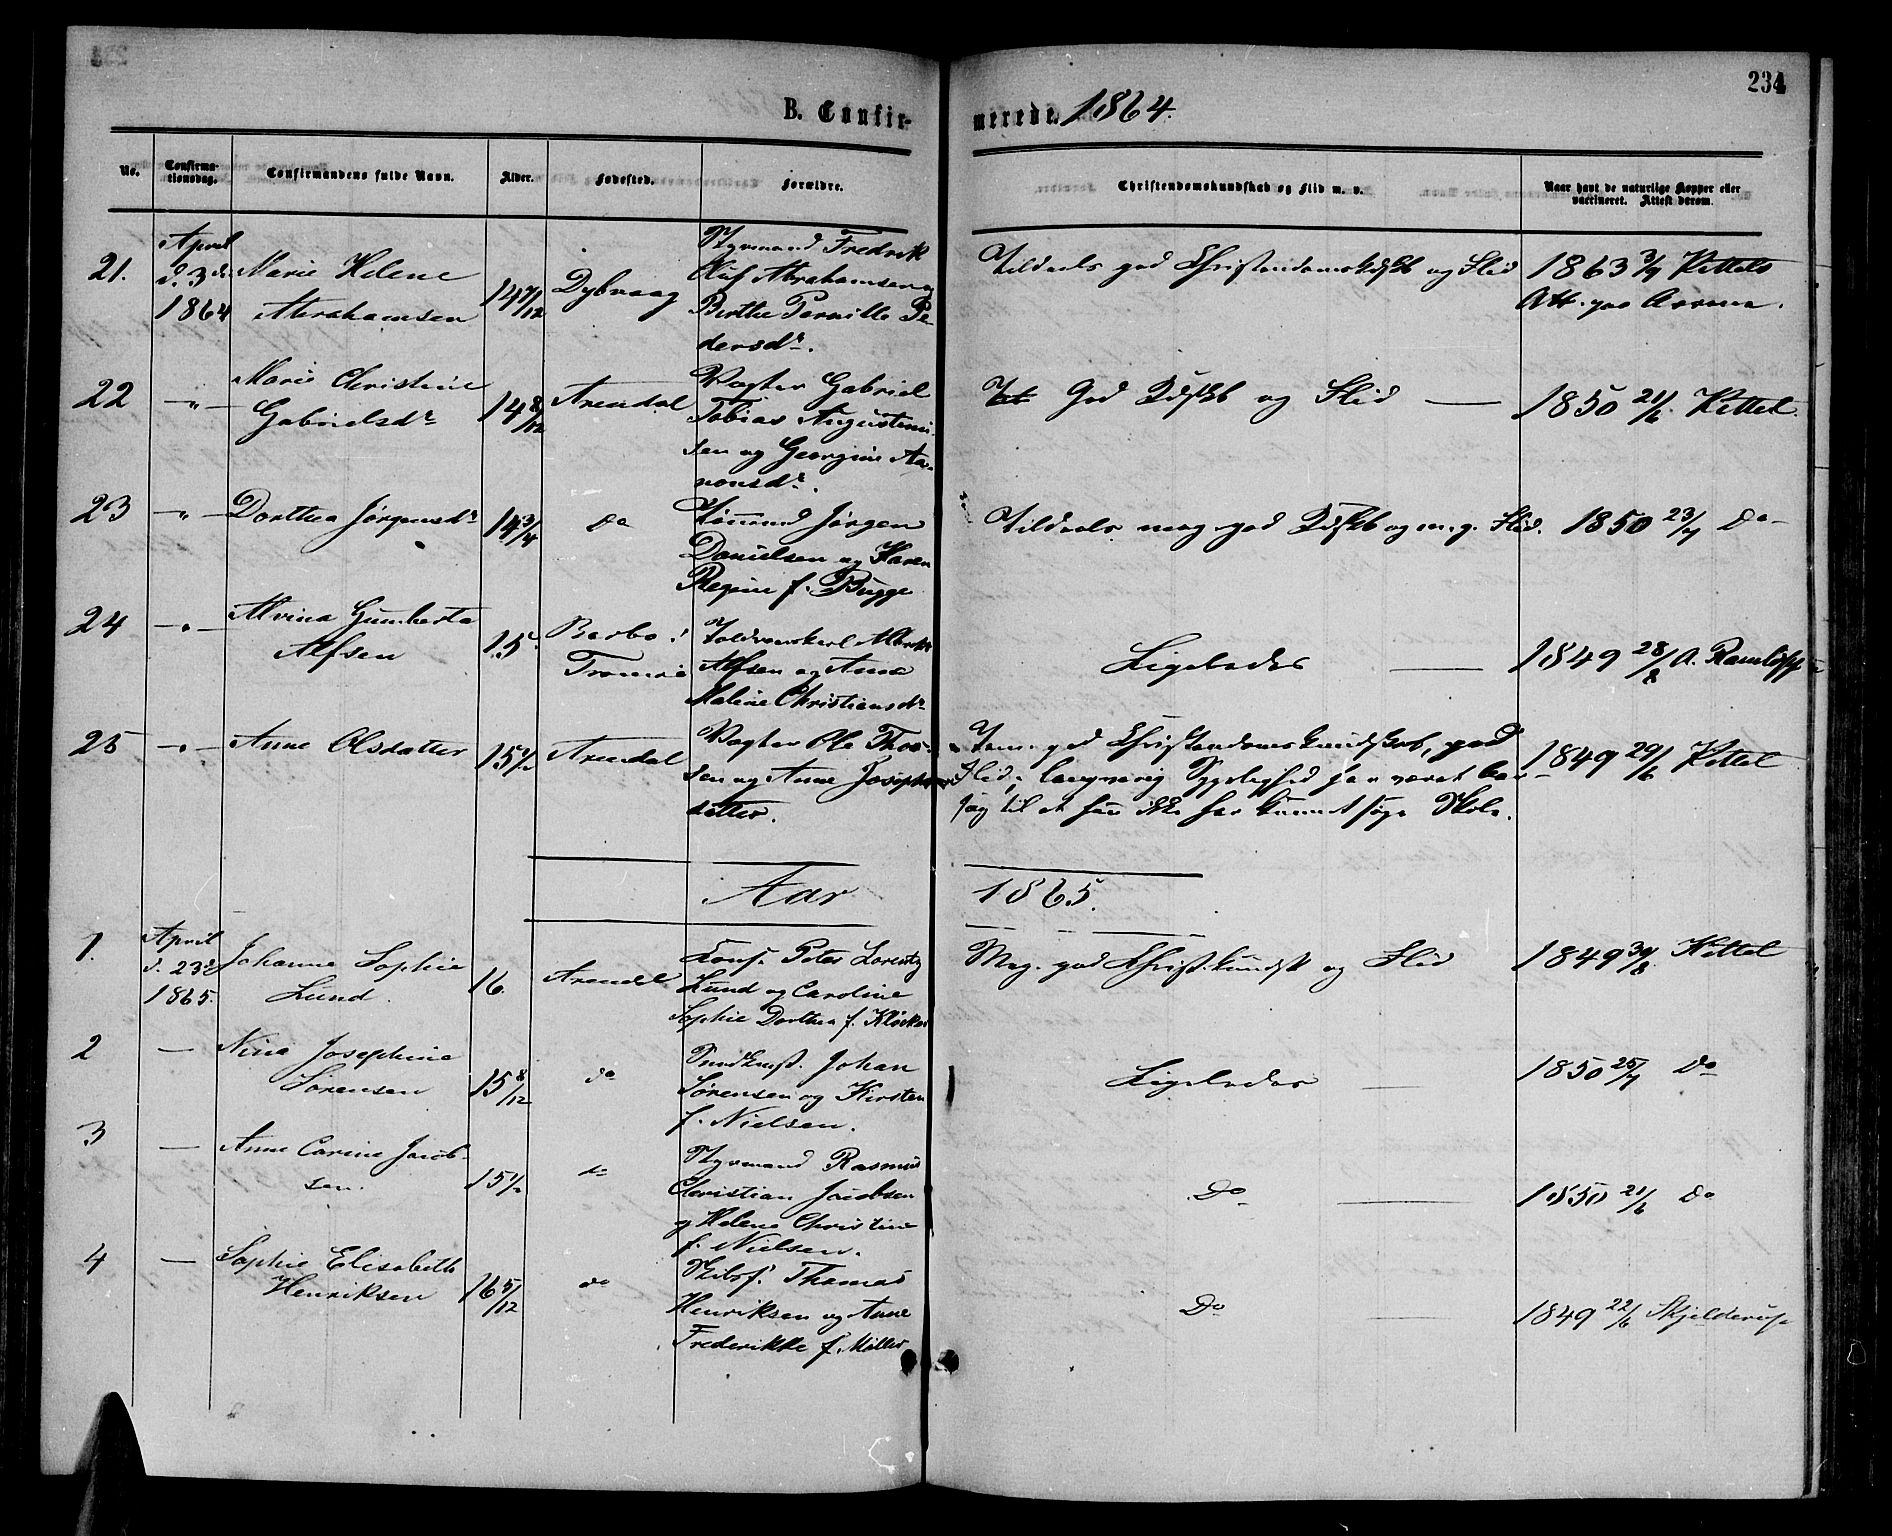 234
B. Confir-
merede. 1864.
No.
Confirma-
tionsdag.
Confirmandens fulde Navn.
Alder.
Fødested.
Forældre.
Christendomskundskab og Flid m. v.
Naar havt de naturlige Kopper eller
vaccineret. Attest derom.
21.
April
d. 3d.
1864
Marie Helene
Abrahamsen
14 7/12
Dybvaag
Styrmand Fredrik
Oluf Abrahamsen og
Berthe Pernille Pe-
dersdr.
Tildeels god Christendomskdskb og Flid
1863 3/9 Kittels
Att. paa Aarene.
22
-"-
Marie Christine
Gabrielsdr
14 8/12
Arendal
Vægter Gabriel
Tobias Augustini-
sen og Georgine Aa-
ronsdr.
God Kdskb og Flid
1850 21/6 Kittel.
23
-"-
Dorthea Jørgensdr
14 3/4
Do
Tømmd Jørgen
Danielsen og Karen
Regine f. Bugge
Tildeels meg. god Kdskb og m. g. Flid.
1850 23/7 Do
24
-"-
Alvina Gumberta
Alfsen
15
Barbo i
Tromø
Toldrorskarl
Alfsen og Anne
Malene Christiansdr
Ligeledes
1849 28/8 A.
25
-"-
Anne Olsdatter
15 1/2
Arendal
Vægter Ole Thor-
sen og Anne Josephs-
datter.
god Christendomskundskab, god
Flid, langvarig Sygelighed har været Aar-
sag til at hun ikke har kunnet søge Skole.
1849 29/6 Kittel
Aar
1865.
1.
April
d. 23d
1865.
Johanne Sophie
Lund.
16.
Arendal
Cons. Peter Lorentz
Lund og Caroline
Sophie Dorthea f. Kløcker
Meg. god Christ.kundsk og Flid
1849 30/8. Kittel
2
—
Nina Josephine
Sørensen
15 8/12
do
Johan
Sørensen og Kirsten
f. Nielsen.
Ligeledes
1850 25/7 Do
3
—
Anne Carine Jacob-
sen.
15 1/2
do
Styrmand Rasmus
Christian Jacobsen
og Helene Christine
f. Nielsen.
Do
1850 21/6 Do
4
—
Sophie Elisabeth
Henriksen
16 5/12
do
Skibsf. Thomas
Henriksen og Anne
Frederikke f. Møller
Do
1849 22/6 Skjelderup